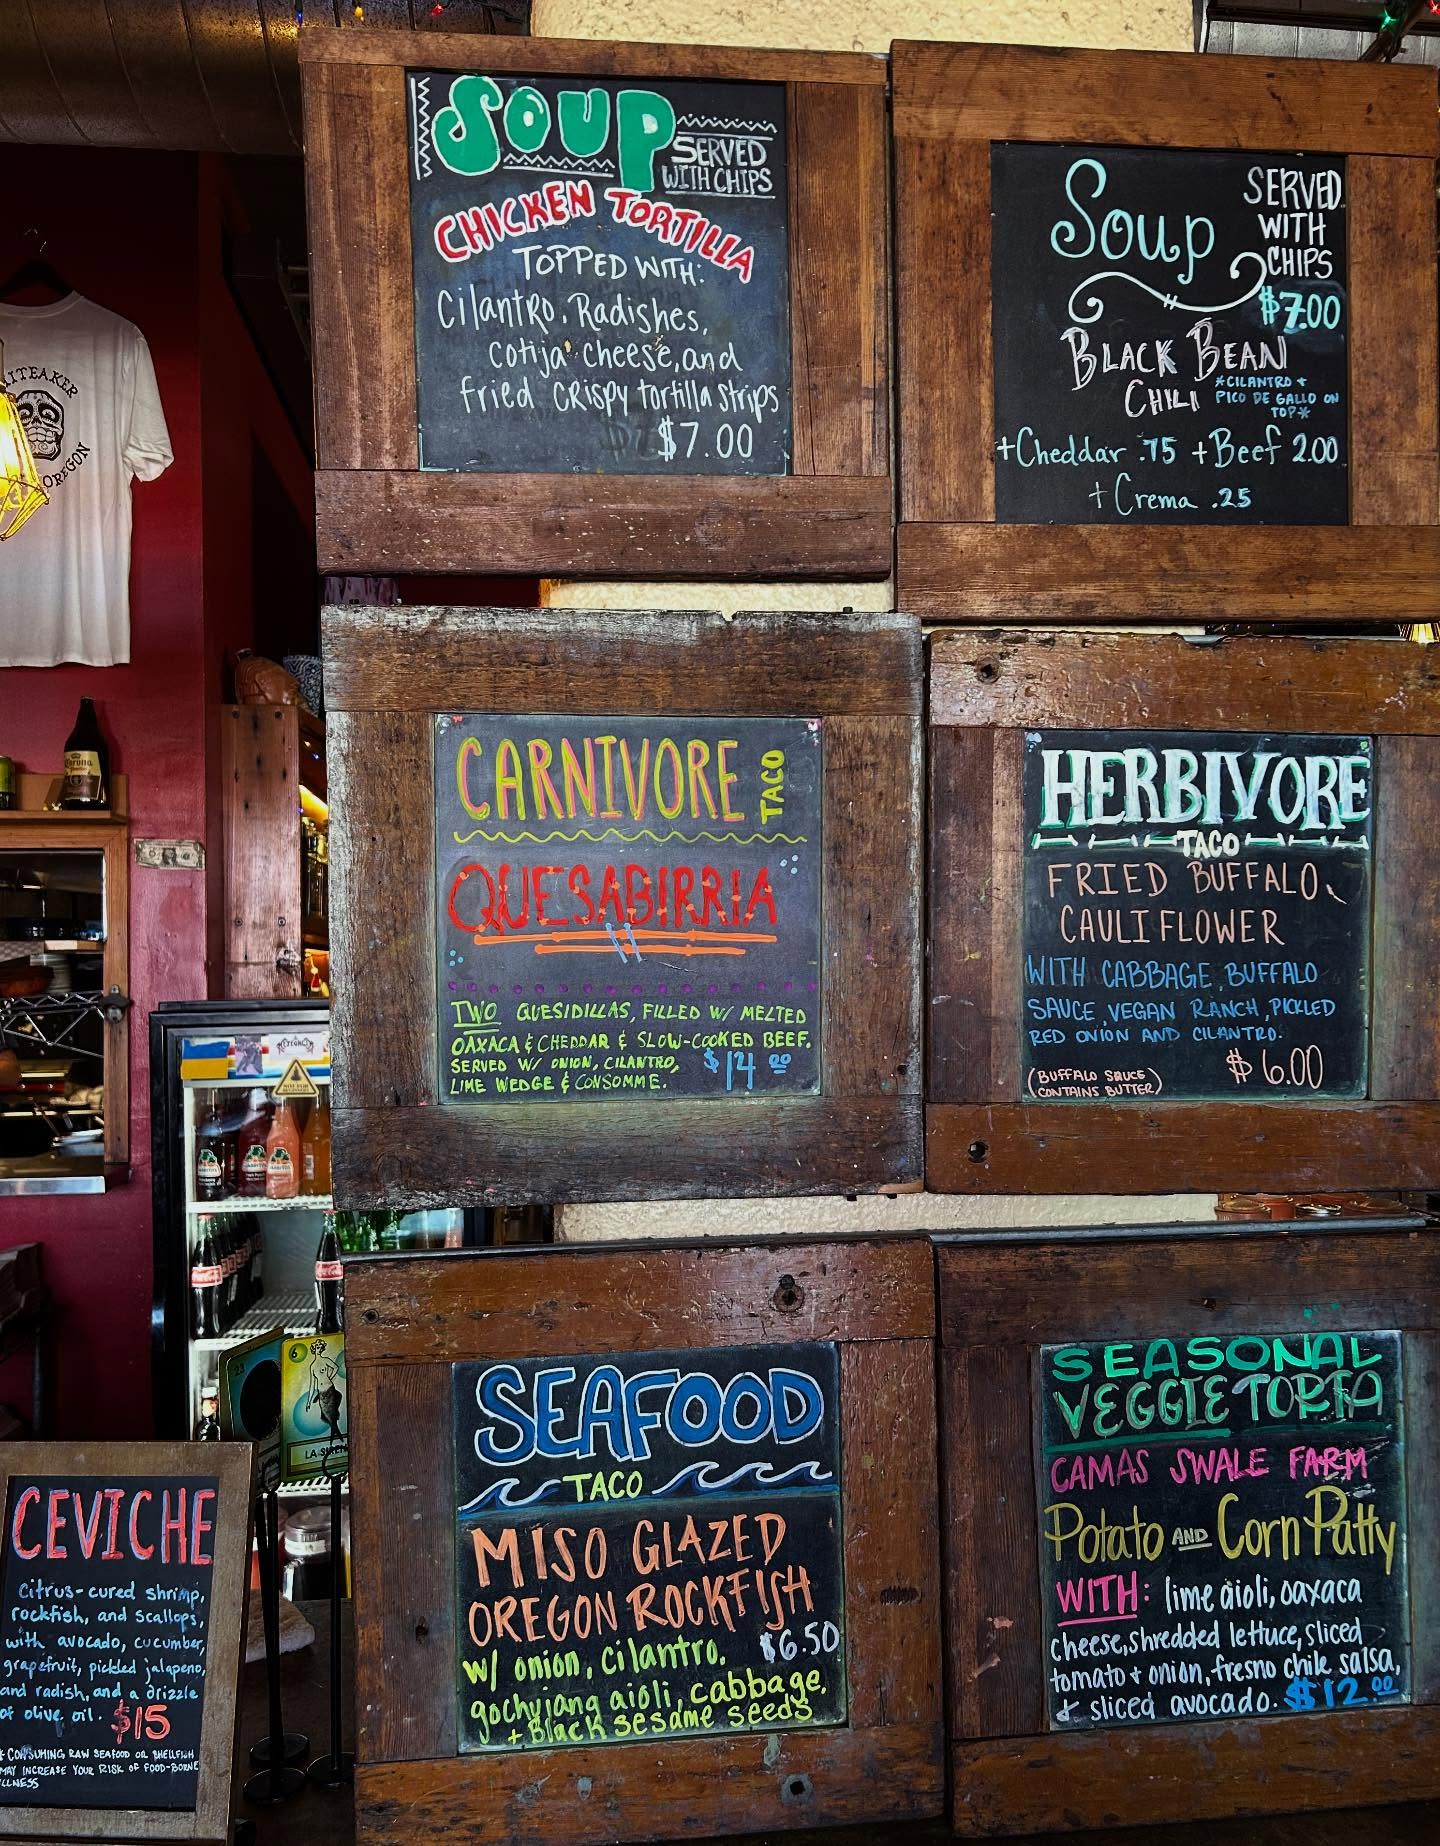 SOUP
SERVED
WITH CHIPS
CHICKEN TORTILLA
TOPPED WITH:
Cilantro, Radishes,
cotija cheese, and
fried crispy tortilla strips
$7.00
Soup
SERVED
WITH
CHIPS
$7.00
BLACK BEAN
CHILI
*CILANTRO +
PICO DE GALLO ON
TOP*
+Cheddar .75 +Beef 2.00
+Crema .25
ITEAKER
OREGON
CARNIVORE
TACO
QUESABIRRIA
TWO QUESIDILLAS, FILLED W/ MELTED
OAXACA & CHEDDAR & SLOW-COOKED BEEF.
SERVED W/ ONION, CILANTRO,
LIME WEDGE & CONSOMME.
$14.00
HERBIVORE
TACO
FRIED BUFFALO
CAULIFLOWER
WITH CABBAGE, BUFFALO
SAUCE, VEGAN RANCH, PICKLED
RED ONION AND CILANTRO.
$6.00
(BUFFALO SAUCE
CONTAINS BUTTER)
SEAFOOD
TACO
MISO GLAZED
OREGON ROCKFISH
w/ onion, cilantro,
$6.50
gochujang aioli, cabbage,
+ Black sesame seeds
SEASONAL
VEGGIE TORTA
CAMAS SWALE FARM
Potato AND Corn Patty
WITH: lime aioli, oaxaca
cheese, shredded lettuce, sliced
tomato + onion, fresno chile salsa,
& sliced avocado. $12.00
CEVICHE
Citrus-cured shrimp,
rockfish, and scallops,
with avocado, cucumber,
grapefruit, pickled jalapeno,
and radish, and a drizzle
of olive oil. $15
* CONSUMING RAW SEAFOOD OR SHELLFISH
MAY INCREASE YOUR RISK OF FOOD-BORNE
ILLNESS
Corona
Coca-Cola
6
LA SIREN